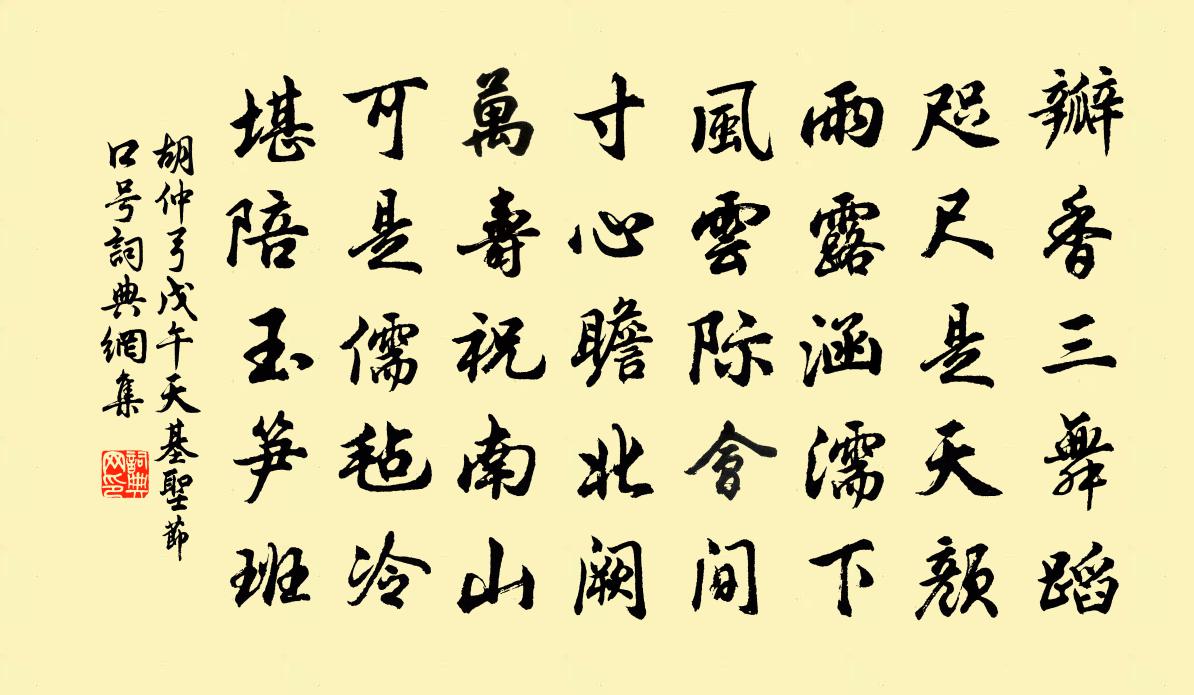 瓣香三舞蹈
咫尺是天顔
雨露涵濡下
風雲際會間
寸心瞻北闕
萬壽祝南山
可是儒毡冷
堪陪玉笋班
胡仲弓戊午天基聖節
口号詞典網集
詞典網印